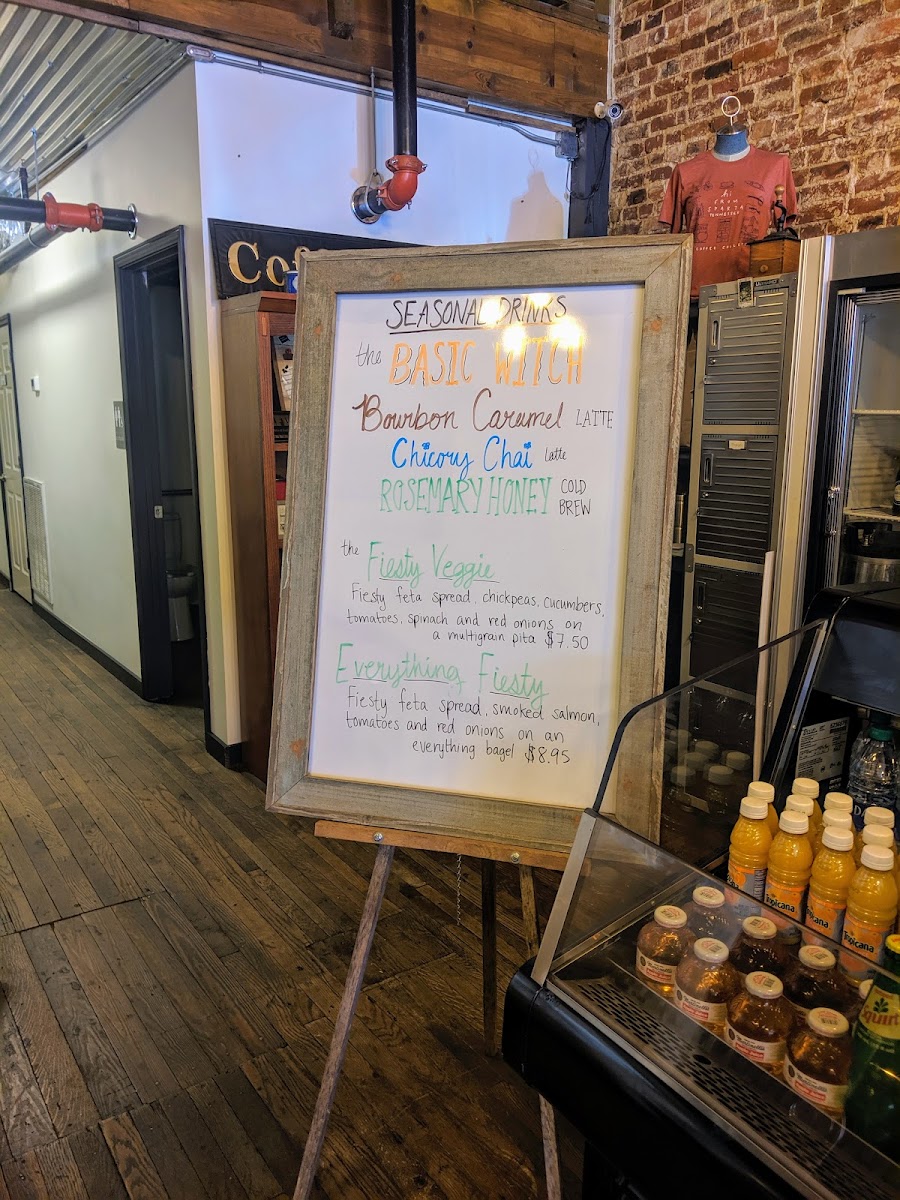 SEASONAL DRINKS
the BASIC WITCH
Bourbon Caramel LATTE
Chicory Chai latte
ROSEMARY HONEY COLD
BREW
the Fiesty Veggie
Fiesty feta spread, chickpeas, cucumbers,
tomatoes, spinach and red onions on
a multigrain pita $7.50
Everything Fiesty
Fiesty feta spread, smoked salmon,
tomatoes and red onions on an
everything bagel $8.95
Cof
hi
FROM
SPARTA
TENNESSEE
COFFEE COLLECTIVE
Tropicana
Tropicana
Tropicana
Tropicana
Squirt